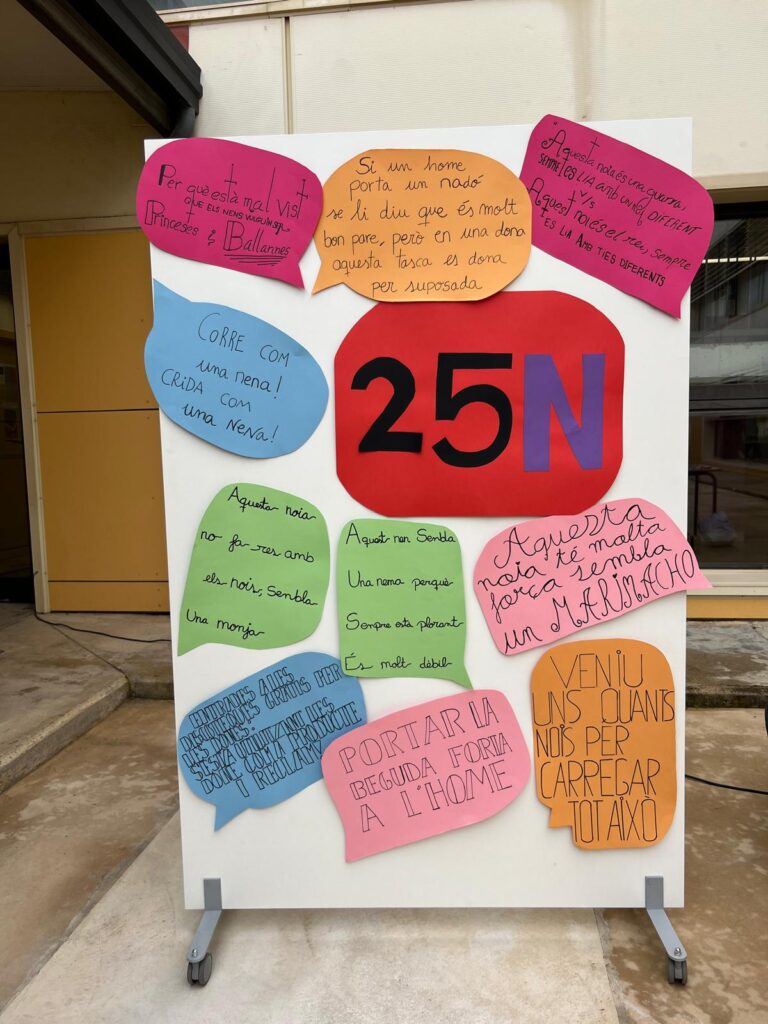 Per què està mal vist
QUE ELS NENS VULGUIN SER
Princeses i Ballarines
Si un home
porta un nadó
se li diu que és molt
bon pare, però en una dona
aquesta tasca es dona
per suposada
"Aquesta noia és una guarra,
SEMPRE ES LIA AMB UN NOI DIFERENT
V/S
Aquest noi és el rei, Sempre
ES LIA AMB TIES DIFERENTS
CORRE COM
una nena!
CRIDA COM
una NENA!
25N
Aquesta noia
no fa res amb
els nois, Sembla
Una monja
Aquest nen Sembla
Una nena perquè
Sempre està plorant
És molt dèbil
Aquesta
noia té molta
força sembla
un MARIMACHO
ENTRADES A LES
DISCOTEQUES GRATIS PER
LES DONES.
S'ESTÀ UTILITZANT LES
DONE COM A PRODUCTE
I RECLAM
PORTAR LA
BEGUDA FORTA
A L'HOME
VENIU
UNS QUANTS
NOIS PER
CARREGAR
TOT AIXÒ